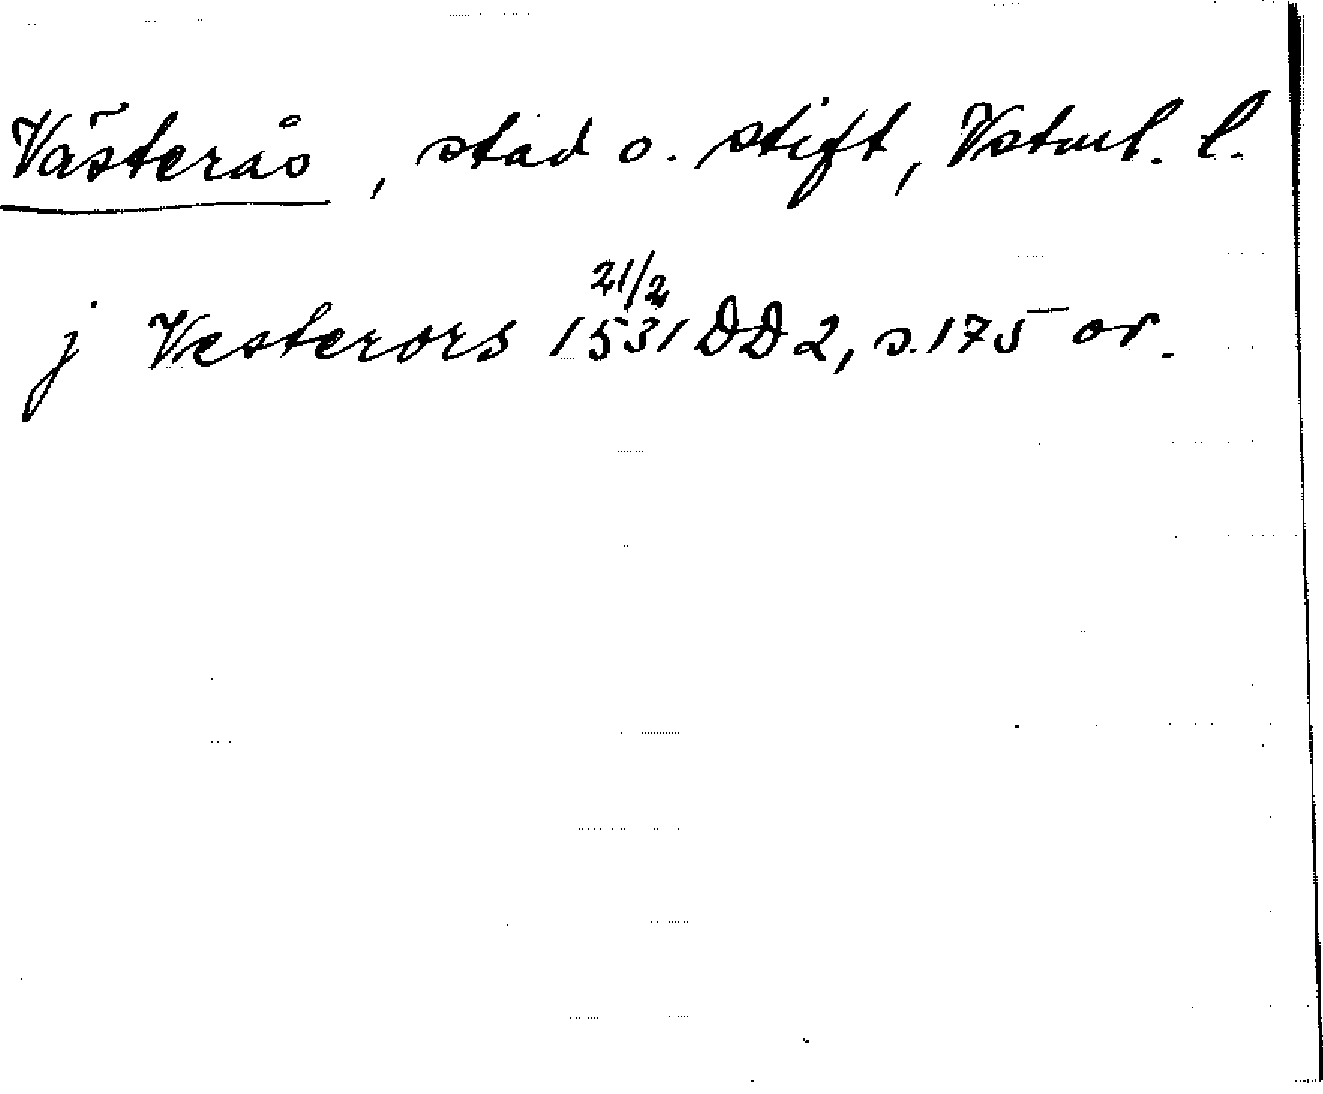 Västerås, stad o. stift, Vstml. l.
j Vesterors 21/2 1531 DD 2, s. 175 or.